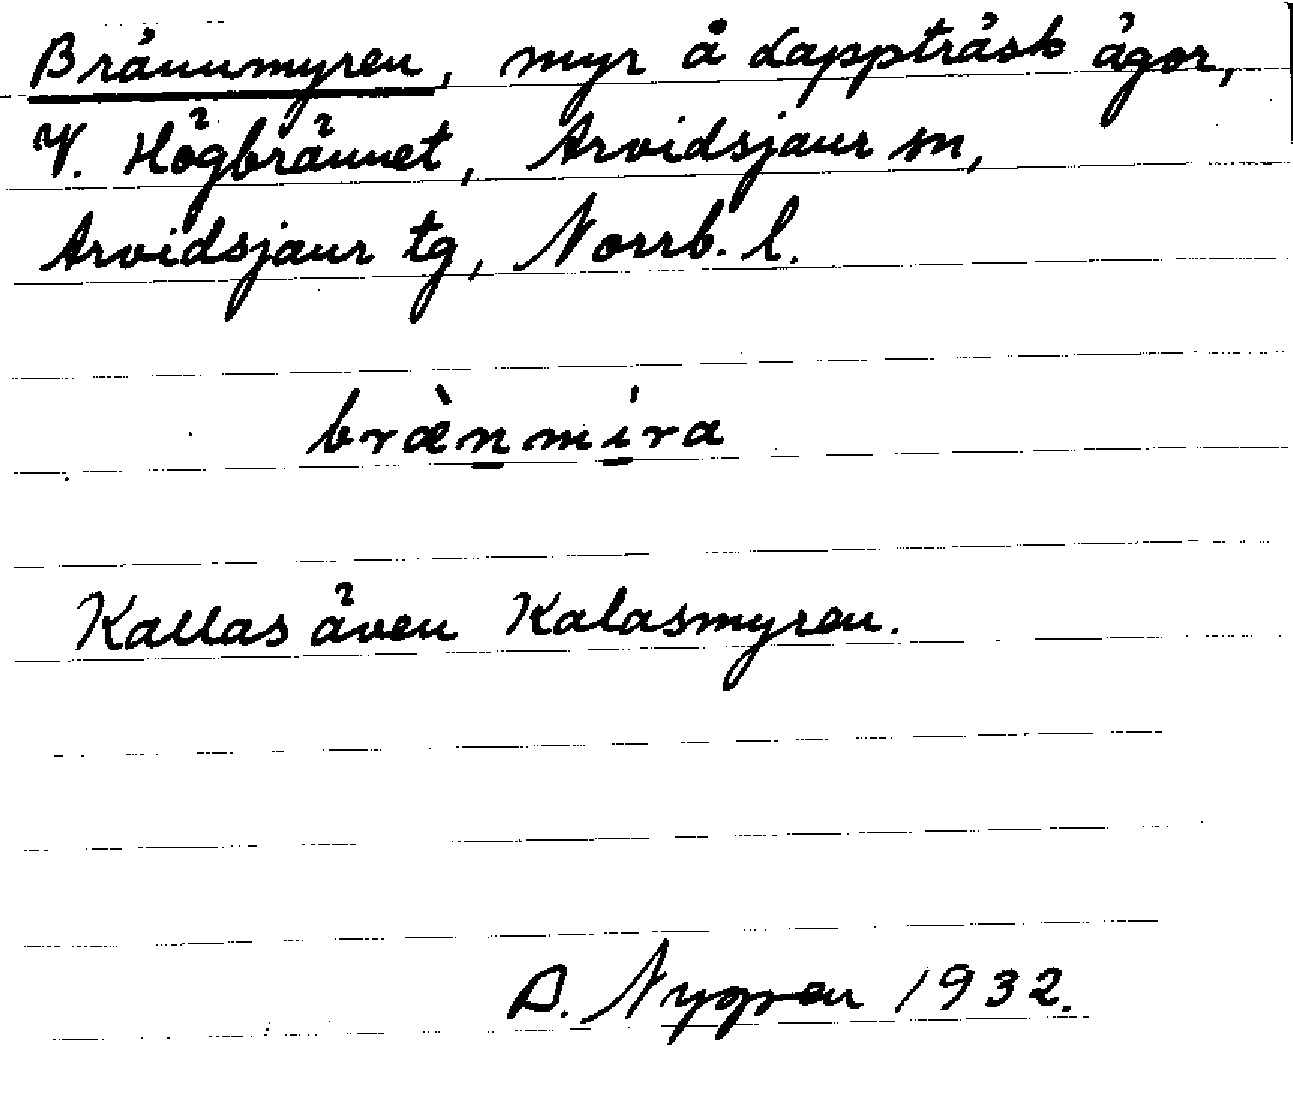 Brännmyren, myr å Lappträsk ägor,
V. Högbrännet, Arvidsjaur sn,
Arvidsjaur tg, Norrb. l.
bræ̀nmíra
Kallas även Kalasmyren.
D. Nygren 1932.